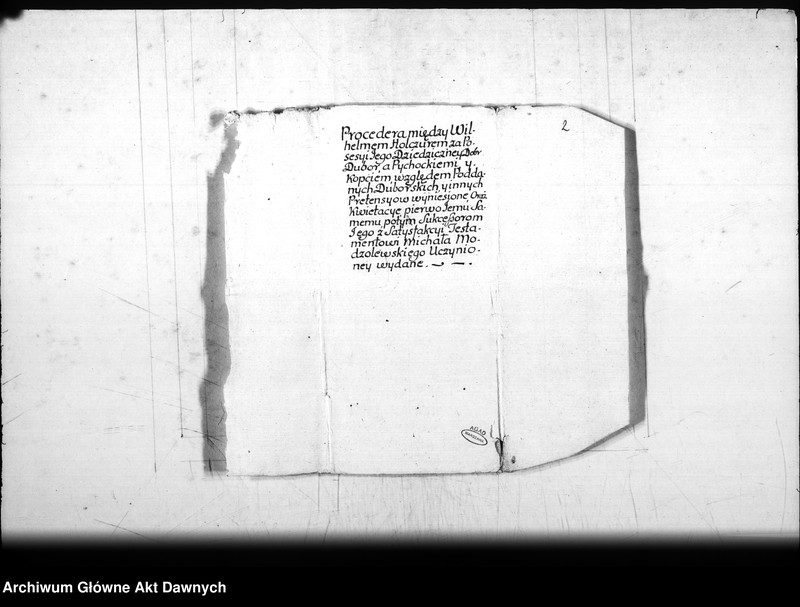 2
Procedera między Wil-
helmem Holczurem za Po-
sesyi Jego Dziedziczney Dobr
Dubor, a Pychockiemi, y
Kopciem względem Podda-
nych Duborskich, y innych
Pretensyow wyniesione Oraz
Kwietacye pierwo Jemu Sa-
memu potym Sukceßorom
Jego z Satysfakcyi Testa-
mentowi Michała Mo-
dzolewskiego Uczynio-
ney wydane.
AGAD
WARSZAWA
Archiwum Główne Akt Dawnych